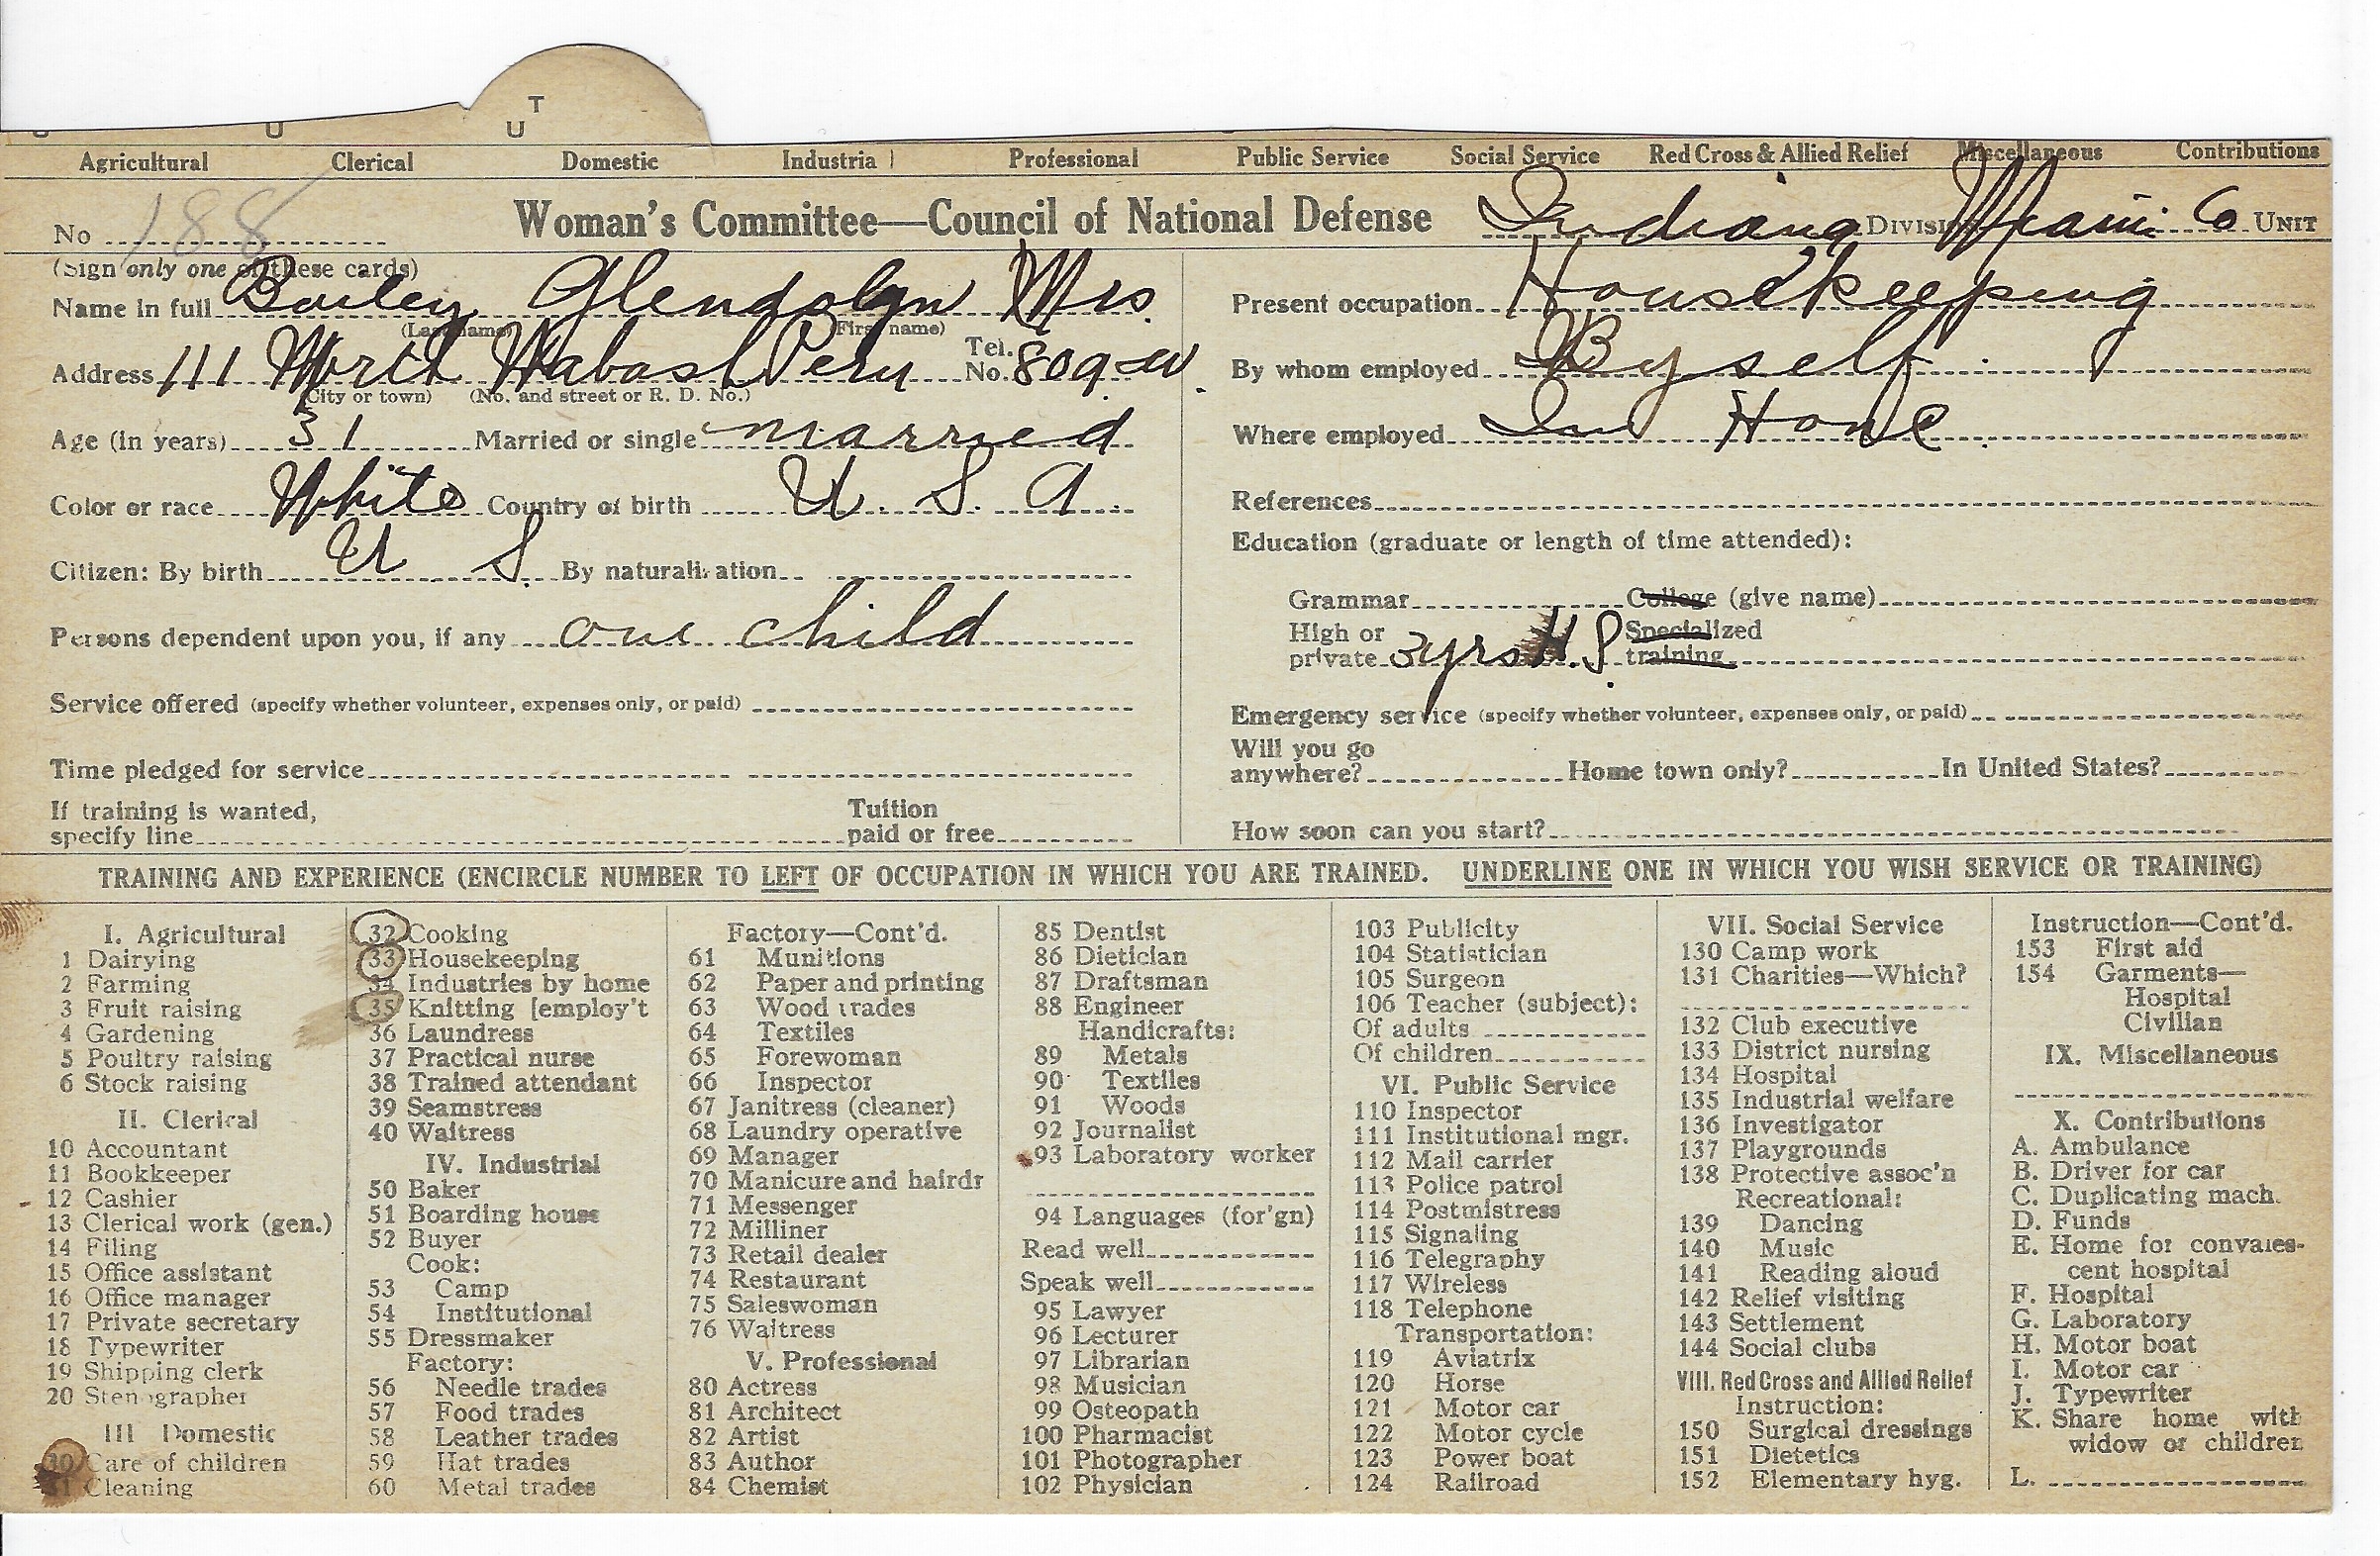 T
U U
Agricultural Clerical Domestic Industrial Professional Public Service Social Service Red Cross & Allied Relief Miscellaneous Contributions
No 188
Woman's Committee—Council of National Defense
Indiana DIVISION Miami Co UNIT
(Sign only one of these cards)
Name in full Bailey Glendolyn Mrs.
(Last name) (First name)
Address 111 North Wabash Peru Tel. No. 809-W
(City or town) (No. and street or R. D. No.)
Age (in years) 31 Married or single married
Color or race White Country of birth U. S. A.
Citizen: By birth U S. By naturalization
Persons dependent upon you, if any one child
Service offered (specify whether volunteer, expenses only, or paid)
Time pledged for service
If training is wanted,
specify line Tuition paid or free
Present occupation Housekeeping
By whom employed By self
Where employed In Home
References
Education (graduate or length of time attended):
Grammar College (give name)
High or private 3 yrs H. S. Specialized training
Emergency service (specify whether volunteer, expenses only, or paid)
Will you go anywhere? Home town only? In United States?
How soon can you start?
TRAINING AND EXPERIENCE (ENCIRCLE NUMBER TO LEFT OF OCCUPATION IN WHICH YOU ARE TRAINED. UNDERLINE ONE IN WHICH YOU WISH SERVICE OR TRAINING)
I. Agricultural
1 Dairying
2 Farming
3 Fruit raising
4 Gardening
5 Poultry raising
6 Stock raising
II. Clerical
10 Accountant
11 Bookkeeper
12 Cashier
13 Clerical work (gen.)
14 Filing
15 Office assistant
16 Office manager
17 Private secretary
18 Typewriter
19 Shipping clerk
20 Stenographer
III Domestic
30 Care of children
31 Cleaning
32 Cooking
33 Housekeeping
34 Industries by home
35 Knitting [employ't
36 Laundress
37 Practical nurse
38 Trained attendant
39 Seamstress
40 Waitress
IV. Industrial
50 Baker
51 Boarding house
52 Buyer
Cook:
53 Camp
54 Institutional
55 Dressmaker
Factory:
56 Needle trades
57 Food trades
58 Leather trades
59 Hat trades
60 Metal trades
Factory—Cont'd.
61 Munitions
62 Paper and printing
63 Wood trades
64 Textiles
65 Forewoman
66 Inspector
67 Janitress (cleaner)
68 Laundry operative
69 Manager
70 Manicure and hairdr
71 Messenger
72 Milliner
73 Retail dealer
74 Restaurant
75 Saleswoman
76 Waitress
V. Professional
80 Actress
81 Architect
82 Artist
83 Author
84 Chemist
85 Dentist
86 Dietician
87 Draftsman
88 Engineer
Handicrafts:
89 Metals
90 Textiles
91 Woods
92 Journalist
93 Laboratory worker
94 Languages (for'gn)
Read well
Speak well
95 Lawyer
96 Lecturer
97 Librarian
98 Musician
99 Osteopath
100 Pharmacist
101 Photographer
102 Physician
103 Publicity
104 Statistician
105 Surgeon
106 Teacher (subject):
Of adults
Of children
VI. Public Service
110 Inspector
111 Institutional mgr.
112 Mail carrier
113 Police patrol
114 Postmistress
115 Signaling
116 Telegraphy
117 Wireless
118 Telephone
Transportation:
119 Aviatrix
120 Horse
121 Motor car
122 Motor cycle
123 Power boat
124 Railroad
VII. Social Service
130 Camp work
131 Charities—Which?
132 Club executive
133 District nursing
134 Hospital
135 Industrial welfare
136 Investigator
137 Playgrounds
138 Protective assoc'n
Recreational:
139 Dancing
140 Music
141 Reading aloud
142 Relief visiting
143 Settlement
144 Social clubs
VIII. Red Cross and Allied Relief
Instruction:
150 Surgical dressings
151 Dietetics
152 Elementary hyg.
Instruction—Cont'd.
153 First aid
154 Garments—
Hospital
Civilian
IX. Miscellaneous
X. Contributions
A. Ambulance
B. Driver for car
C. Duplicating mach.
D. Funds
E. Home for convales-
cent hospital
F. Hospital
G. Laboratory
H. Motor boat
I. Motor car
J. Typewriter
K. Share home with
widow or children
L.